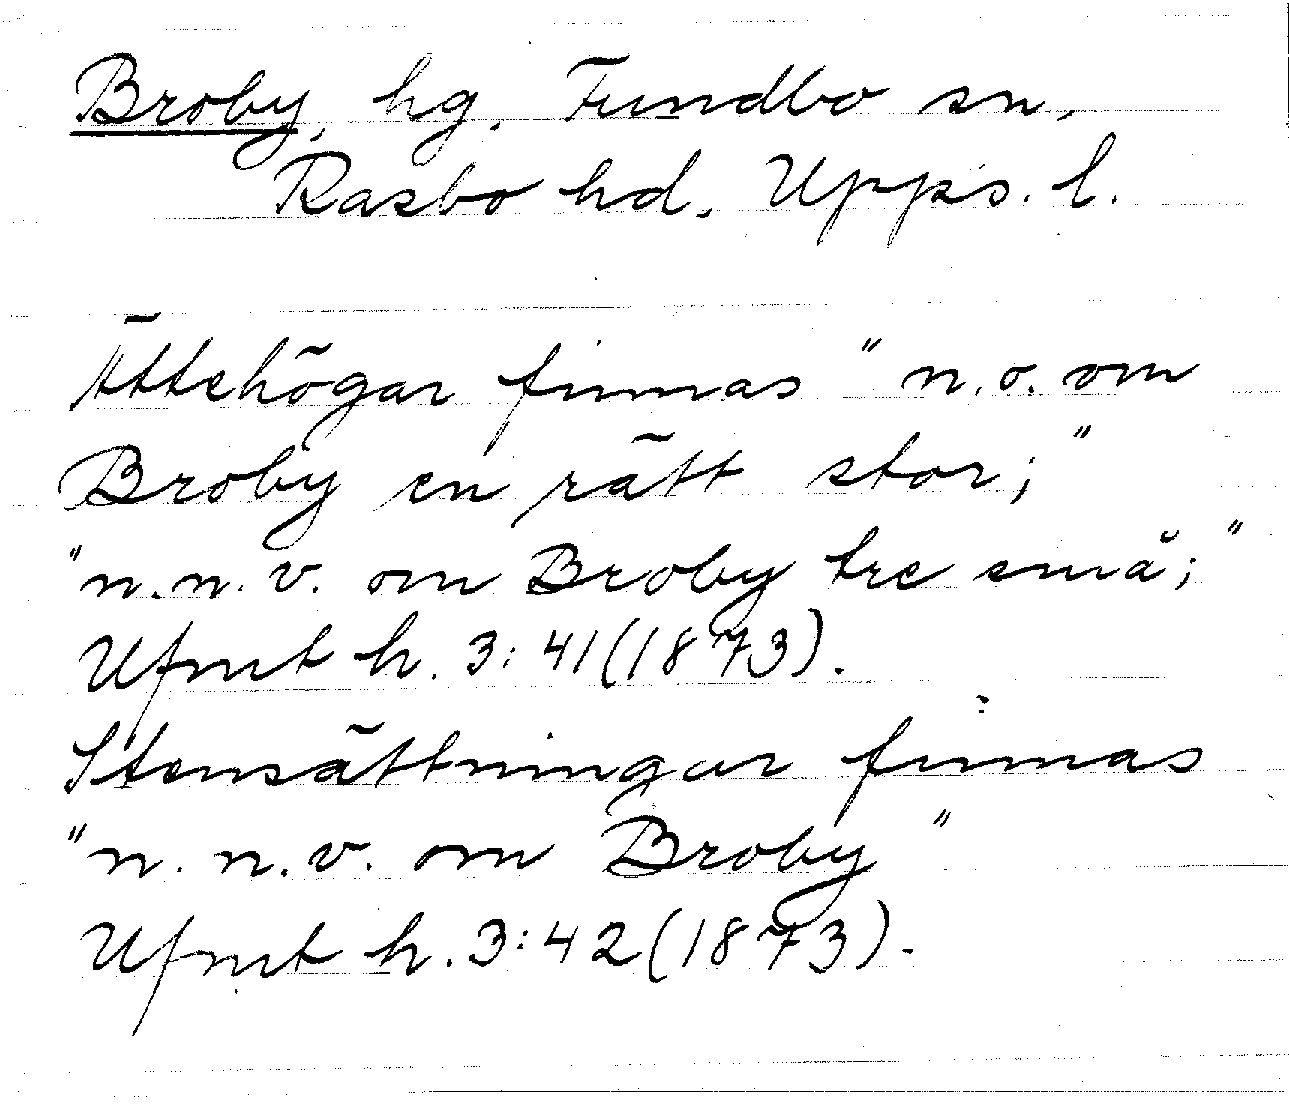 Broby, hg. Fundbo sn,
Rasbo hd. Upps. l.
Ättehögar finnas "n.o. om
Broby en rätt stor;"
"n.n.v. om Broby tre små;"
Ufmt h. 3:41(1873).
Stensättningar finnas
"n. n.v. om Broby"
Ufmt h. 3:42(1873).